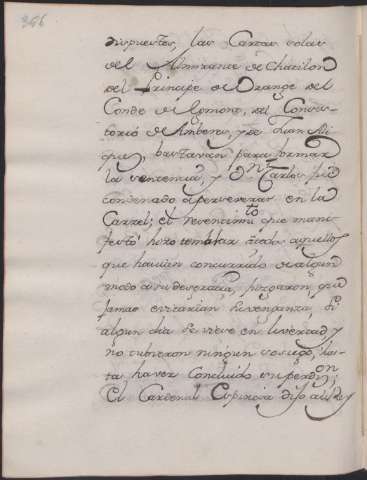 366
dispuestos, las Cartas solas
del Almirante de Chatilon
del Principe de Orange del
Conde de Egmont, del Consis-
torio de Amberes, y de Juan Mi-
ques, bastavan para formar
la sentencia, y Dn. Carlos fue
condenado a perseverar en la
Carzel; el resentimto. que mani-
festó hizo temblar á todos aquellos
que havian concurrido de algun
modo a su desgracia, juzgaron, que
jamas evitarian su venganza, si
algun dia se viese en livertad, y
no tubieron ningun sosiego, has-
ta haver concluido su perdizon;
El Cardenal Espinosa dijo al Rey